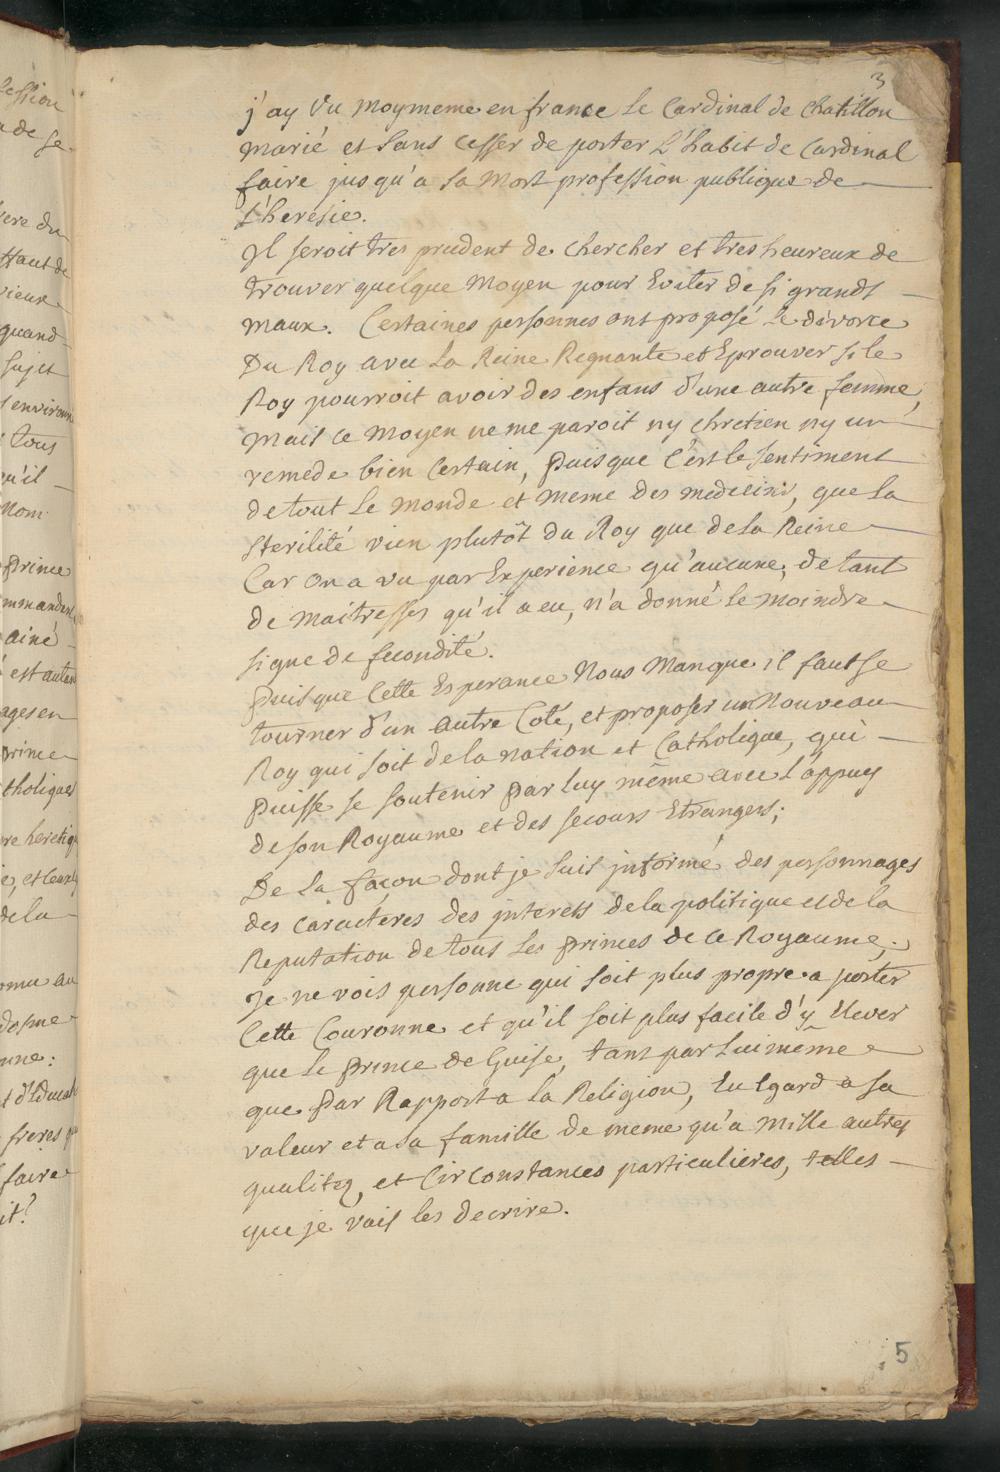 3
j'ay Vu moymeme en france le Cardinal de Chatillon
marié et sans cesser de porter L'habit de Cardinal
faire jusqu'a sa Mort profession publique de
L'heresie.
Il seroit tres prudent de chercher et tres heureux de
trouver quelque moyen pour Eviter de si grands
maux. Certaines personnes ont proposé le divorce
Du Roy avec La Reine Regnante et Eprouver si le
Roy pourroit avoir des enfans d'une autre femme,
mais ce moyen ne me paroit ny chretien ny un
remede bien Certain, puisque C'est le sentiment
de tout Le monde et meme des medecins, que la
Sterilité vien plutôt du Roy que de la Reine
Car on a vu par Experience qu'aucune, de tant
de maitresses qu'il a eu, n'a donné le moindre
signe de fecondité.
Puisque Cette Esperance Nous Manque il faut se
tourner d'un autre Coté, et proposer un Nouveau
Roy qui soit de la nation et Catholique, qui
puisse se soutenir par luy même avec l'appuy
de son Royaume et des secours Etrangers;
De La façon dont je suis informé des personnages
des caracteres des interets de la politique et de la
Reputation de tous les princes de ce Royaume,
Je ne vois personne qui soit plus propre a porter
Cette Couronne et qu'il soit plus facile d'y Elever
que le prince de Guise, tant par Lui même
que par Rapport a la Religion, Eu Egard a sa
valeur et a sa famille de meme qu'a mille autres
qualitez, et Circonstances particulieres, telles
que je vais les decrire.
5
ession
a de se
iere du
Haut de
vieux
quand
sujet
tous
qu'il
nom
Prince
ainé
ages en
prince
de la
nne:
freres
faire
it?